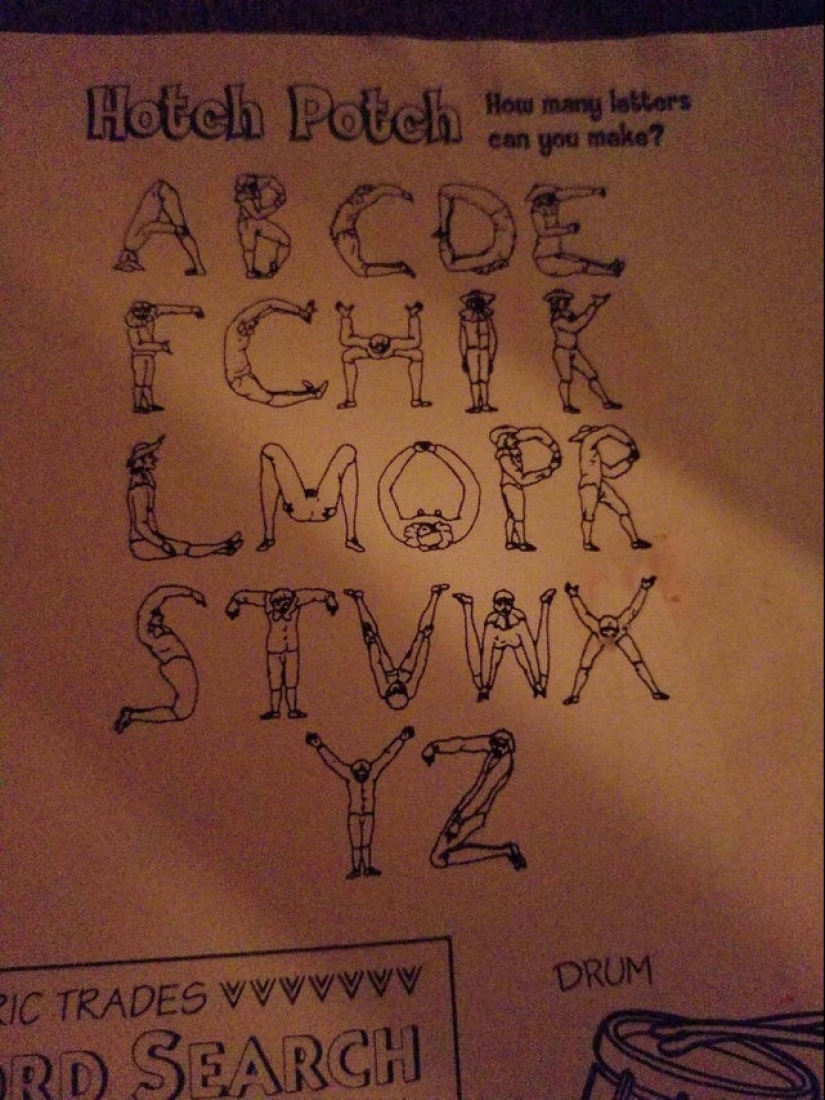 Hotch Potch
How many letters
can you make?
A B C D E
F C H I K
L M O P R
S T V W X
Y Z
RIC TRADES
ORD SEARCH
DRUM